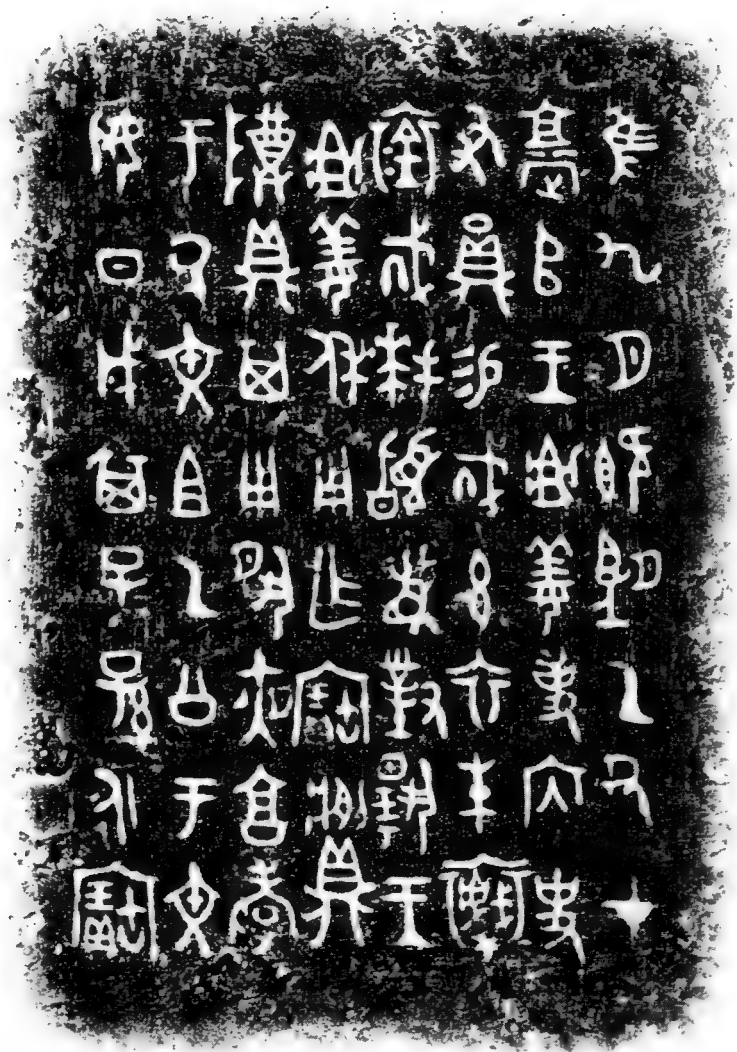 隹九月既望乙丑才
堂𠂤王俎姜事內史
友員易𢦚玄衣朱襮
裣𢦚拜䭫首對揚王
俎姜休用乍寶䵼
尊鼎其用夙夜享孝
于厥文且乙公于文
妣日戊其子子孫孫永寶